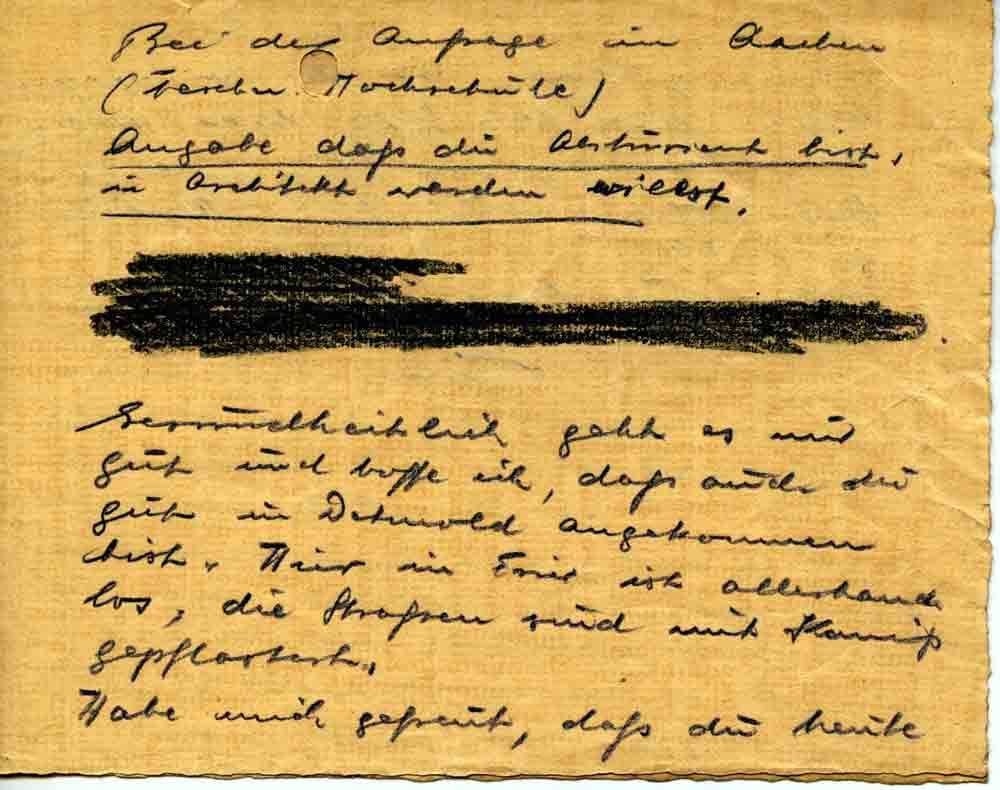 Bei der Anfrage in Aachen
(Techn. Hochschule)
Angabe daß du Abiturient bist,
u Architekt werden willst.
Gesundheitlich geht es mir
gut und hoffe ich, daß auch du
gut in Detmold angekommen
bist. Hier in Trier ist allerhand
los, die Straßen sind mit
gepflastert.
Habe mich gefreut, daß du heute